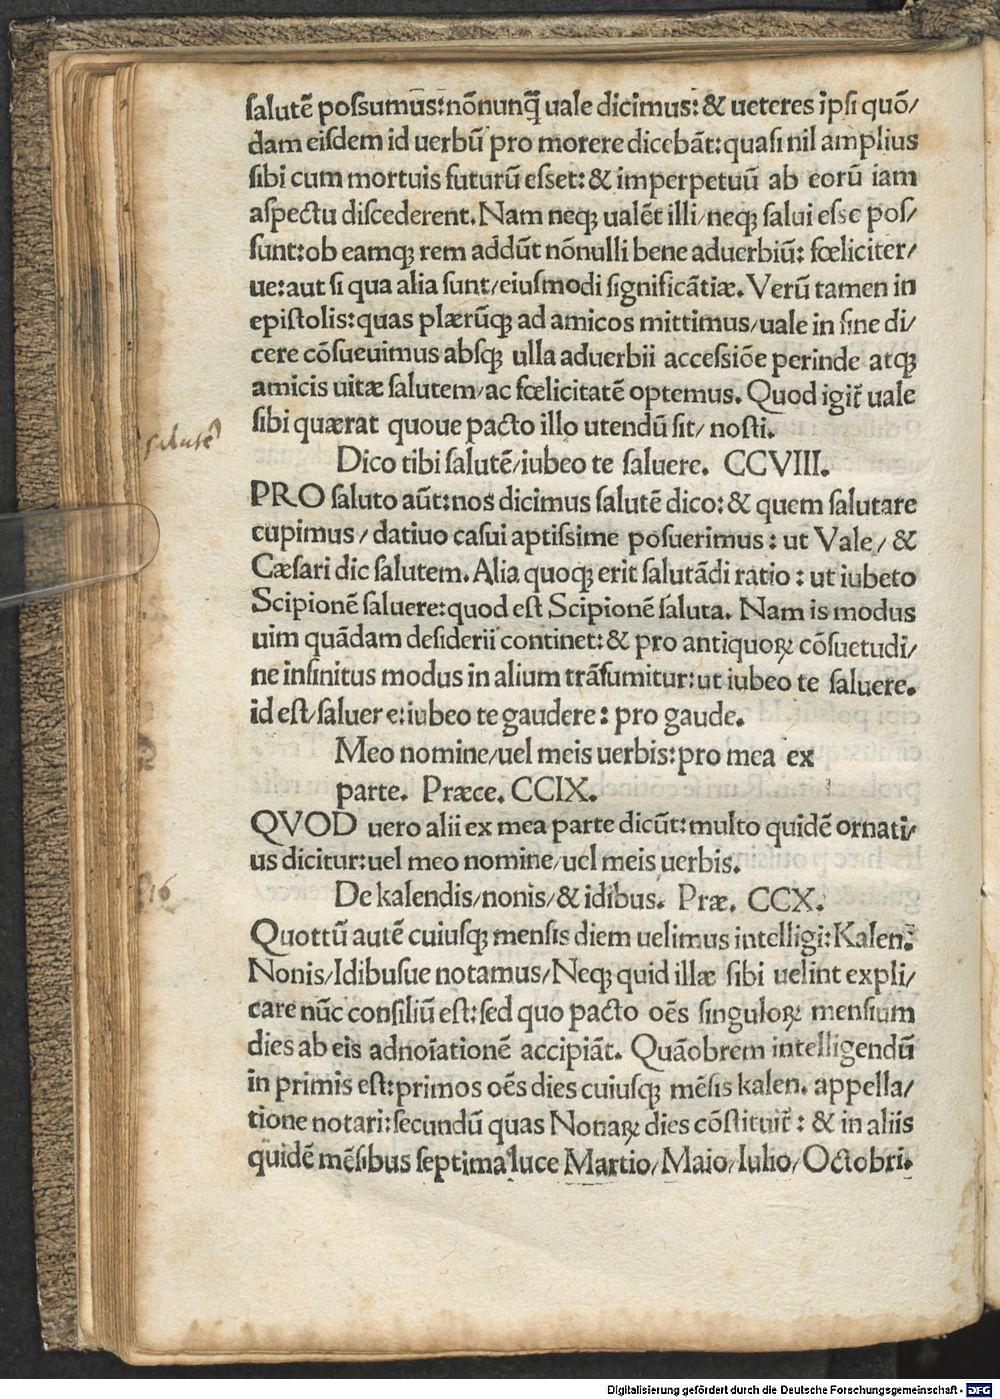 ſalutē poſſumus:nōnunq̄ uale dicimus:& ueteres ipſi quō/
dam eiſdem id uerbū pro morere dicebāt:quaſi nil amplius
ſibi cum mortuis futurū eſſet:& imperpetuū ab eorū iam
aſpectu diſcederent.Nam neqꝫ ualēt illi/neqꝫ ſalui eſſe poſ/
ſunt:ob eamqꝫ rem addūt nōnulli bene aduerbiū: fœliciter/
ue:aut ſi qua alia ſunt/eiuſmodi ſignificātiæ.Verū tamen in
epiſtolis:quas plærūqꝫ ad amicos mittimus/uale in fine di/
cere cōſueuimus abſqꝫ ulla aduerbii acceſſiōe perinde atqꝫ
amicis uitæ ſalutem/ac fœlicitatē optemus. Quod igit̄ uale
ſibi quærat quoue pacto illo utendū ſit/ noſti.
ſalutē
Dico tibi ſalutē/iubeo te ſaluere. CCVIII.
PRO ſaluto aūt:nos dicimus ſalutē dico:& quem ſalutare
cupimus/ datiuo caſui aptiſſime poſuerimus: ut Vale/ &
Cæſari dic ſalutem.Alia quoqꝫ erit ſalutādi ratio: ut iubeto
Scipionē ſaluere:quod eſt Scipionē ſaluta. Nam is modus
uim quādam deſiderii continet:& pro antiquoꝝ cōſuetudi/
ne infinitus modus in alium trāſumitur:ut iubeo te ſaluere.
id eſt/ſaluere:iubeo te gaudere: pro gaude.
Meo nomine/uel meis uerbis:pro mea ex
parte. Præce. CCIX.
QVOD uero alii ex mea parte dicūt:multo quidē ornati/
us dicitur:uel meo nomine/uel meis uerbis.
16
De kalendis/nonis/& idibus. Præ. CCX.
Quottū autē cuiuſqꝫ menſis diem uelimus intelligi:Kalen.
Nonis/Idibuſue notamus/Neqꝫ quid illæ ſibi uelint expli/
care nūc conſiliū eſt:ſed quo pacto oēs ſinguloꝝ menſium
dies ab eis adnoīationē accipiāt. Quāobrem intelligendū
in primis eſt:primos oēs dies cuiuſqꝫ mēſis kalen. appella/
tione notari:ſecundū quas Nonaꝝ dies cōſtituit̄: & in aliis
quidē mēſibus ſeptima luce Martio/Maio/Iulio/Octobri.
Digitalisierung gefördert durch die Deutsche Forschungsgemeinschaft - DFG